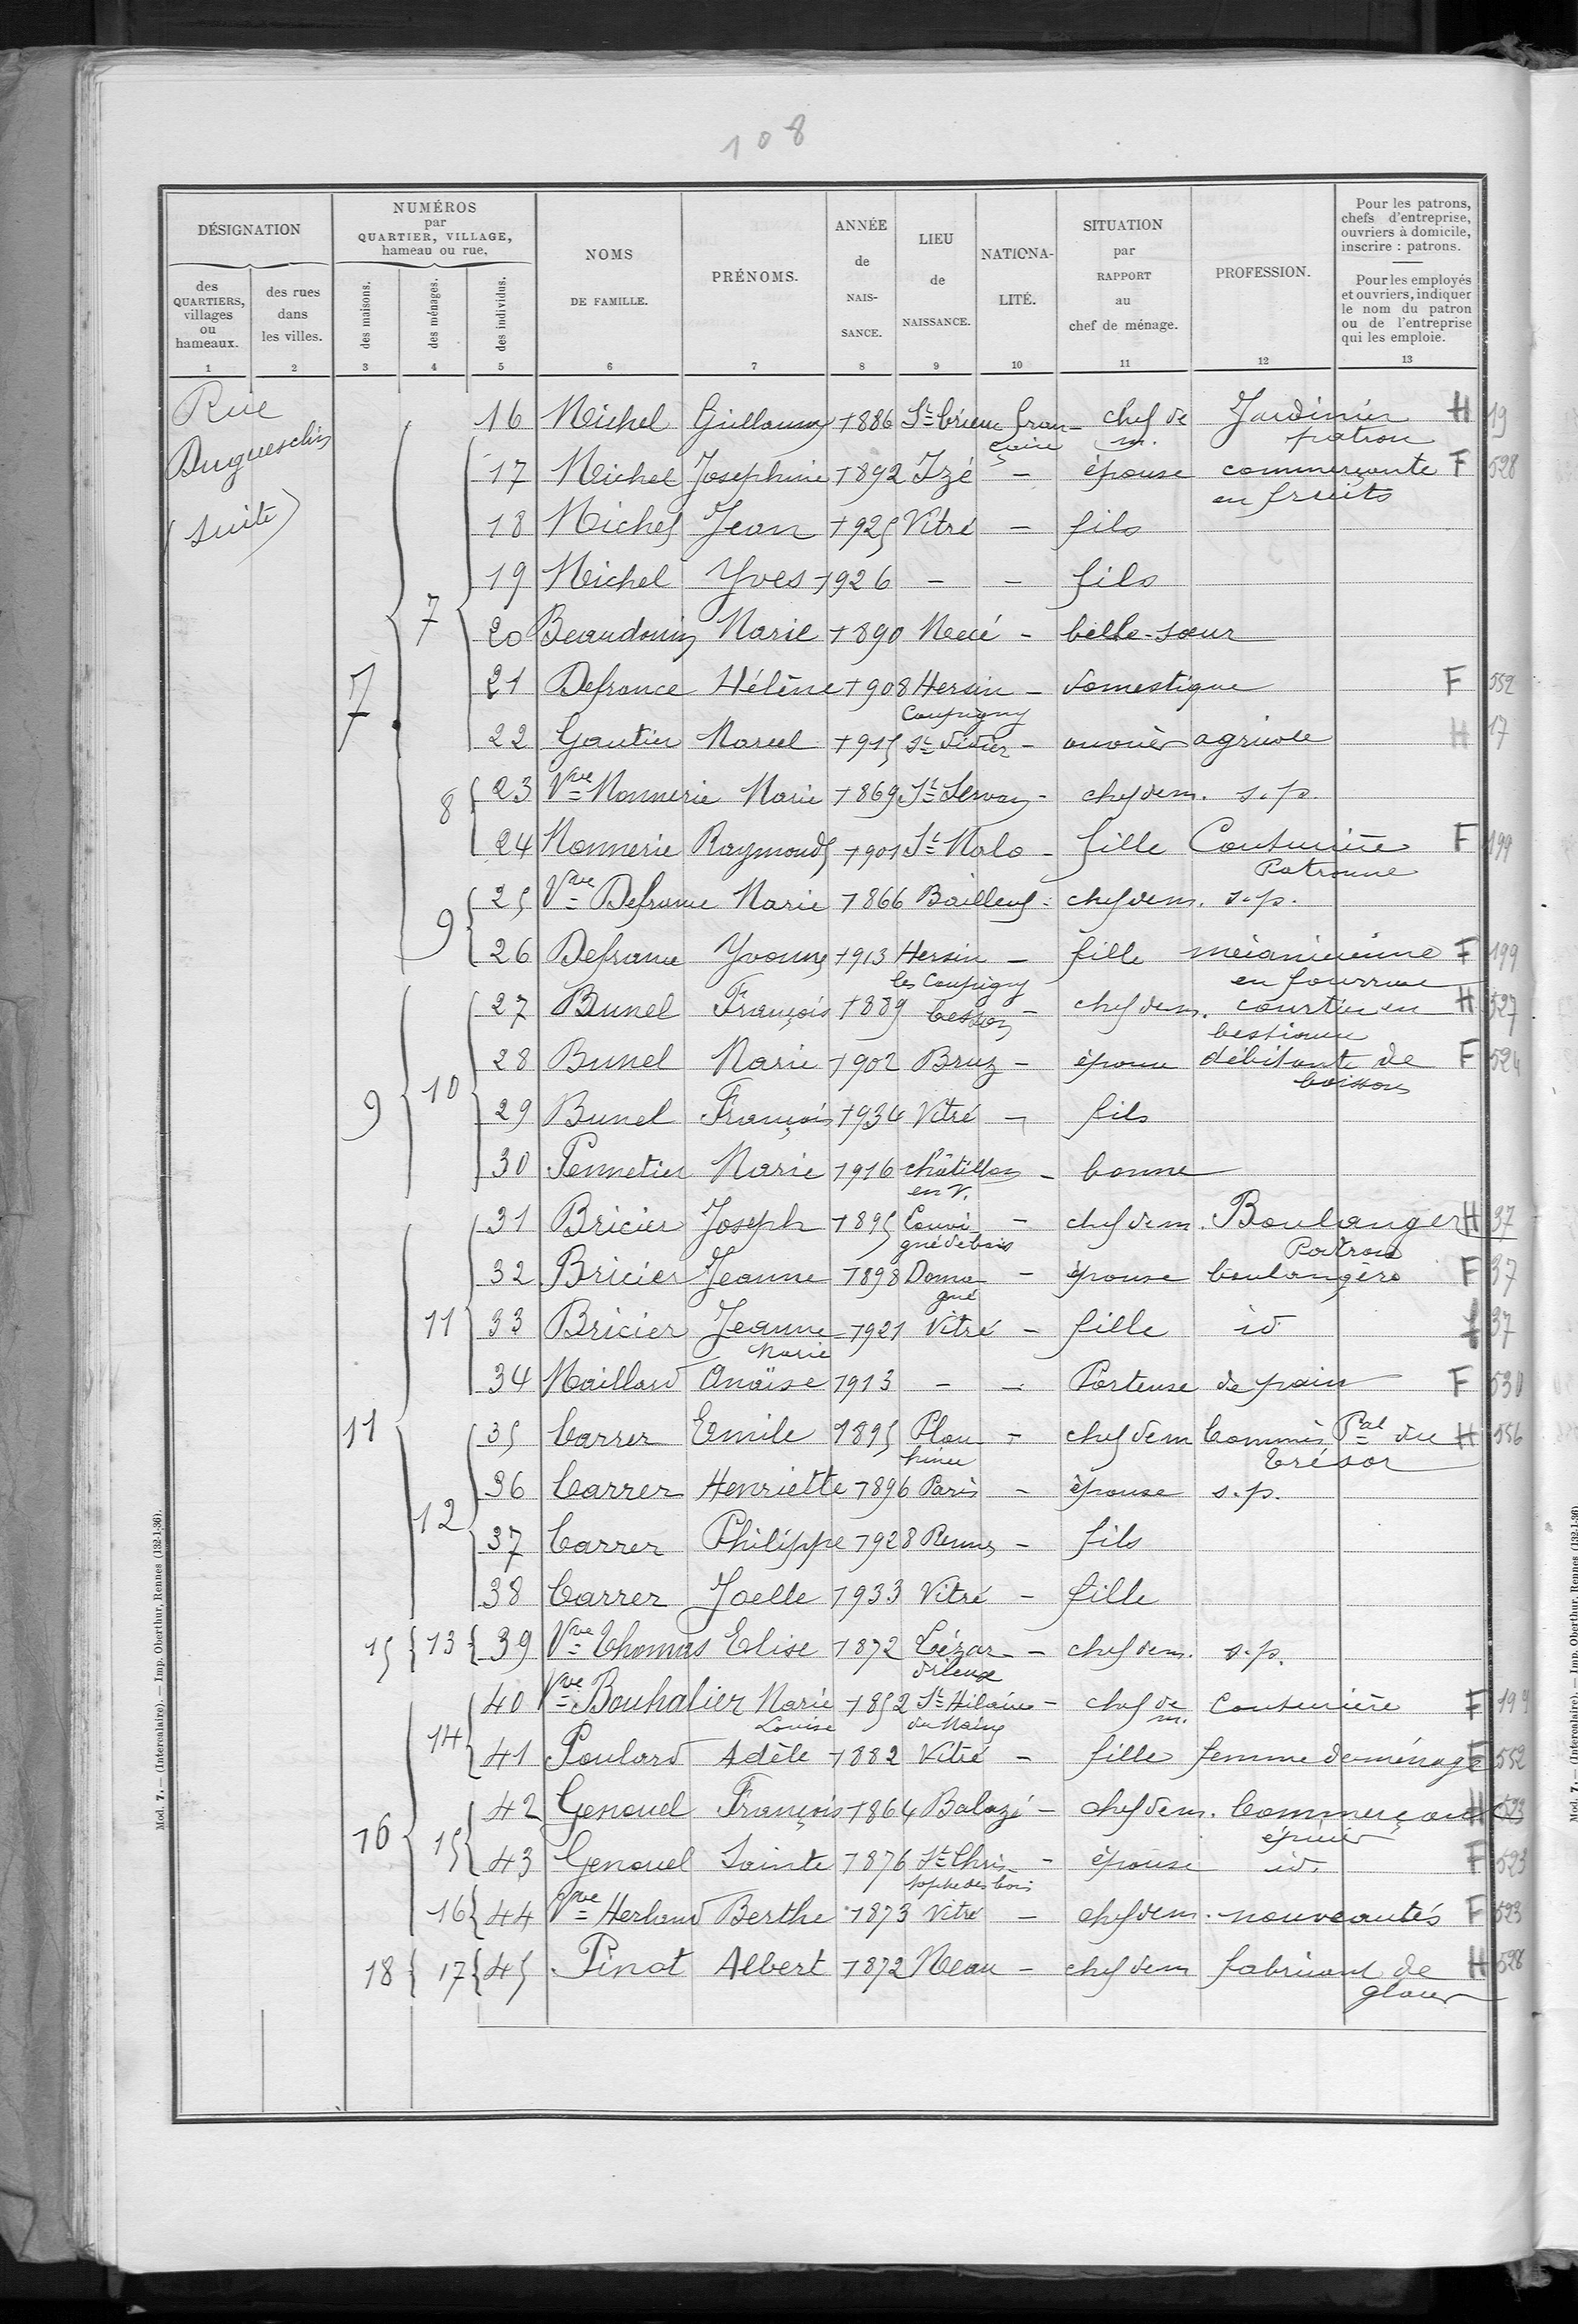 108
DÉSIGNATION
des QUARTIERS, villages ou hameaux.
des rues dans les villes.
NUMÉROS par QUARTIER, VILLAGE, hameau ou rue.
des maisons.
des ménages.
des individus.
NOMS DE FAMILLE.
PRÉNOMS.
ANNÉE de NAIS-SANCE.
LIEU de NAISSANCE.
NATIONA-LITÉ.
SITUATION par RAPPORT au chef de ménage.
PROFESSION.
Pour les patrons, chefs d'entreprise, ouvriers à domicile, inscrire : patrons.
Pour les employés et ouvriers, indiquer le nom du patron ou de l'entreprise qui les emploie.
1 2 3 4 5 6 7 8 9 10 11 12 13
Rue Duguesclin (suite)
16 Michel Guillaume 1886 St-brieuc française chef de m. Jardinier patron H 19
17 Michel Josephine 1892 Izé - épouse commerçante en fruits F 528
18 Michel Jean 1925 Vitré - fils
19 Michel Yves 1926 - - fils
7 20 Beaudouin Marie 1890 Mecé - belle-sœur
7 21 Defrance Hélène 1908 Hersin Coupigny - domestique F 552
22 Gautier Marcel 1915 St Didier - ouvrier agricole H 17
8 23 Vve Monnerie Marie 1869 St Servan - chef de m. s.p.
24 Monnerie Raymonde 1901 St Malo - fille Couturière Patronne F 199
9 25 Vve Defrance Marie 1866 Bailleul - chef de m. s.p.
26 Defrance Yvonne 1913 Hersin les Coupigny - fille mécanicienne en fourrure F 199
27 Bunel François 1889 Cesson - chef de m. courtier en bestiaux H 527
28 Bunel Marie 1902 Bruz - épouse débitante de boissons F 524
9 10 29 Bunel François 1934 Vitré - fils
30 Pennetier Marie 1916 châtillon en V. - bonne
31 Bricier Joseph 1895 Louvigné de bais - chef de m. Boulanger Patron H 37
32 Bricier Jeanne 1898 Domagné - épouse boulangère F 37
11 33 Bricier Jeanne Marie 1921 Vitré - fille id f 37
34 Maillard Anaïse 1913 - - Porteuse de pain F 530
11 35 Carrer Emile 1895 Plouhinec - chef de m Commis Pal du Trésor H 556
36 Carrer Henriette 1896 Paris - épouse s.p.
12 37 Carrer Philippe 1928 Rennes - fils
38 Carrer Joelle 1933 Vitré - fille
15 13 39 Vve Thomas Elise 1872 Lézardrieux - chef de m. s.p.
40 Vve Bouhalier Marie Louise 1852 St Hilaire du Maine - chef de m. Couturière F 199
14 41 Poulard Adèle 1882 Vitré - fille femme de ménage F 552
42 Genouel François 1864 Balazé - chef de m. Commerçant épicier H 523
16 15 43 Genouel Sainte 1876 St Christophe des bois - épouse id. F 523
16 44 Vve Herbaud Berthe 1873 Vitré - chef de m. nouveautés F 523
18 17 45 Pinot Albert 1872 Meau - chef de m fabricant de H 528
Mod. 7. — (Intercalaire). — Imp. Oberthur, Rennes (132-1-36).
Mod. 7. — (Intercalaire). — Imp. Oberthur, Rennes (132-1-36)